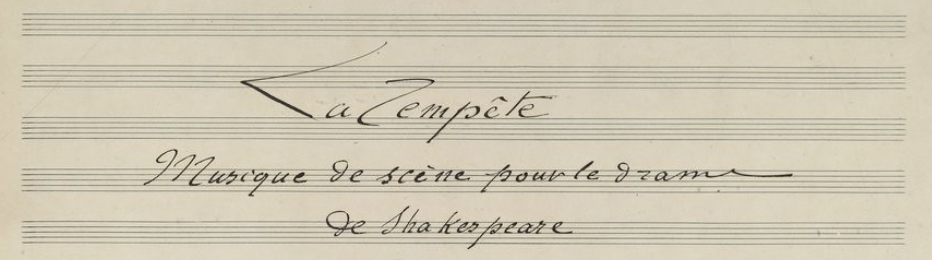 La Tempête
Musique de scène pour le drame
de Shakespeare